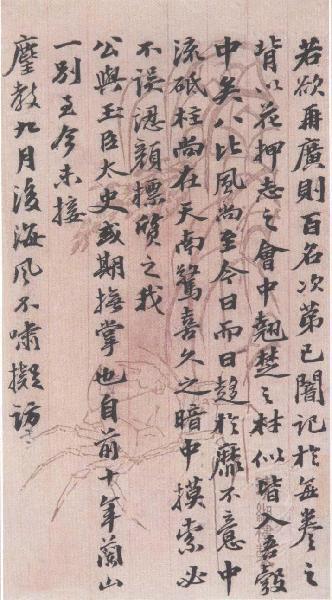 若欲再廣則百名次第已闇記於每卷之
背以花押志之會中翹楚之材似皆入吾彀
中矣八比風尚至今日而日趨於靡不意中
流砥柱尚在天南驚喜久之暗中摸索必
不誤濕顏標質之我
公與玉臣太史或期撫掌也自前十年蘭山
一別至今未接
麈教九月後海風不嘯擬訪